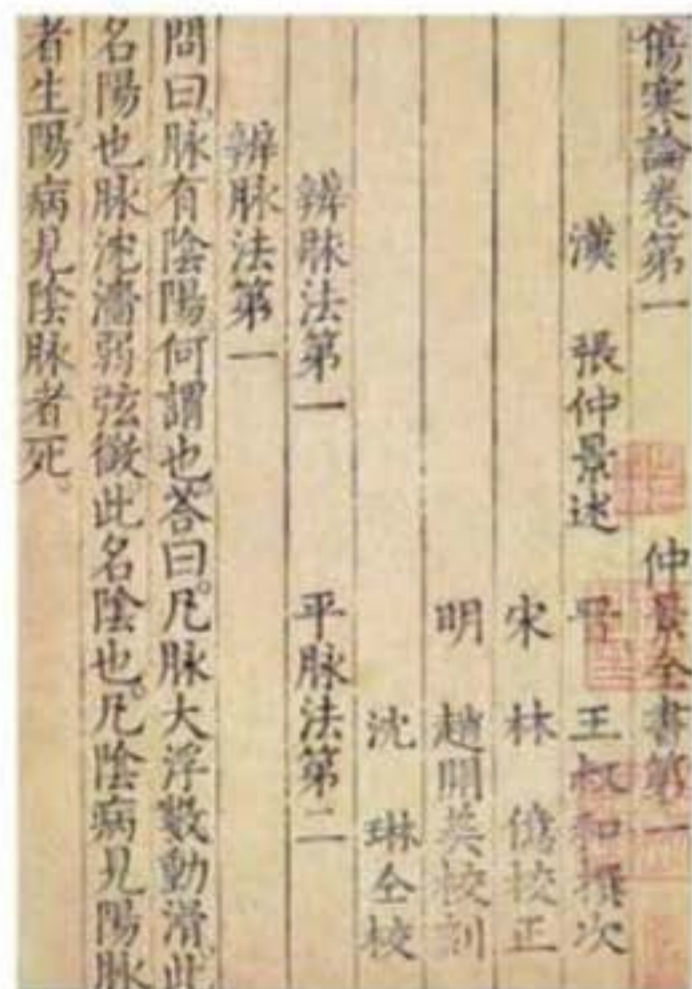 傷寒論卷第一 仲景全書第一
漢 張仲景述 晉 王叔和撰次
宋 林 億校正
明 趙開美校刻
沈 琳仝校
辨脉法第一 平脉法第二
辨脉法第一
問曰。脉有陰陽何謂也。答曰。凡脉大浮數動滑。此
名陽也。脉沈濇弱弦微。此名陰也。凡陰病見陽脉
者生。陽病見陰脉者死。